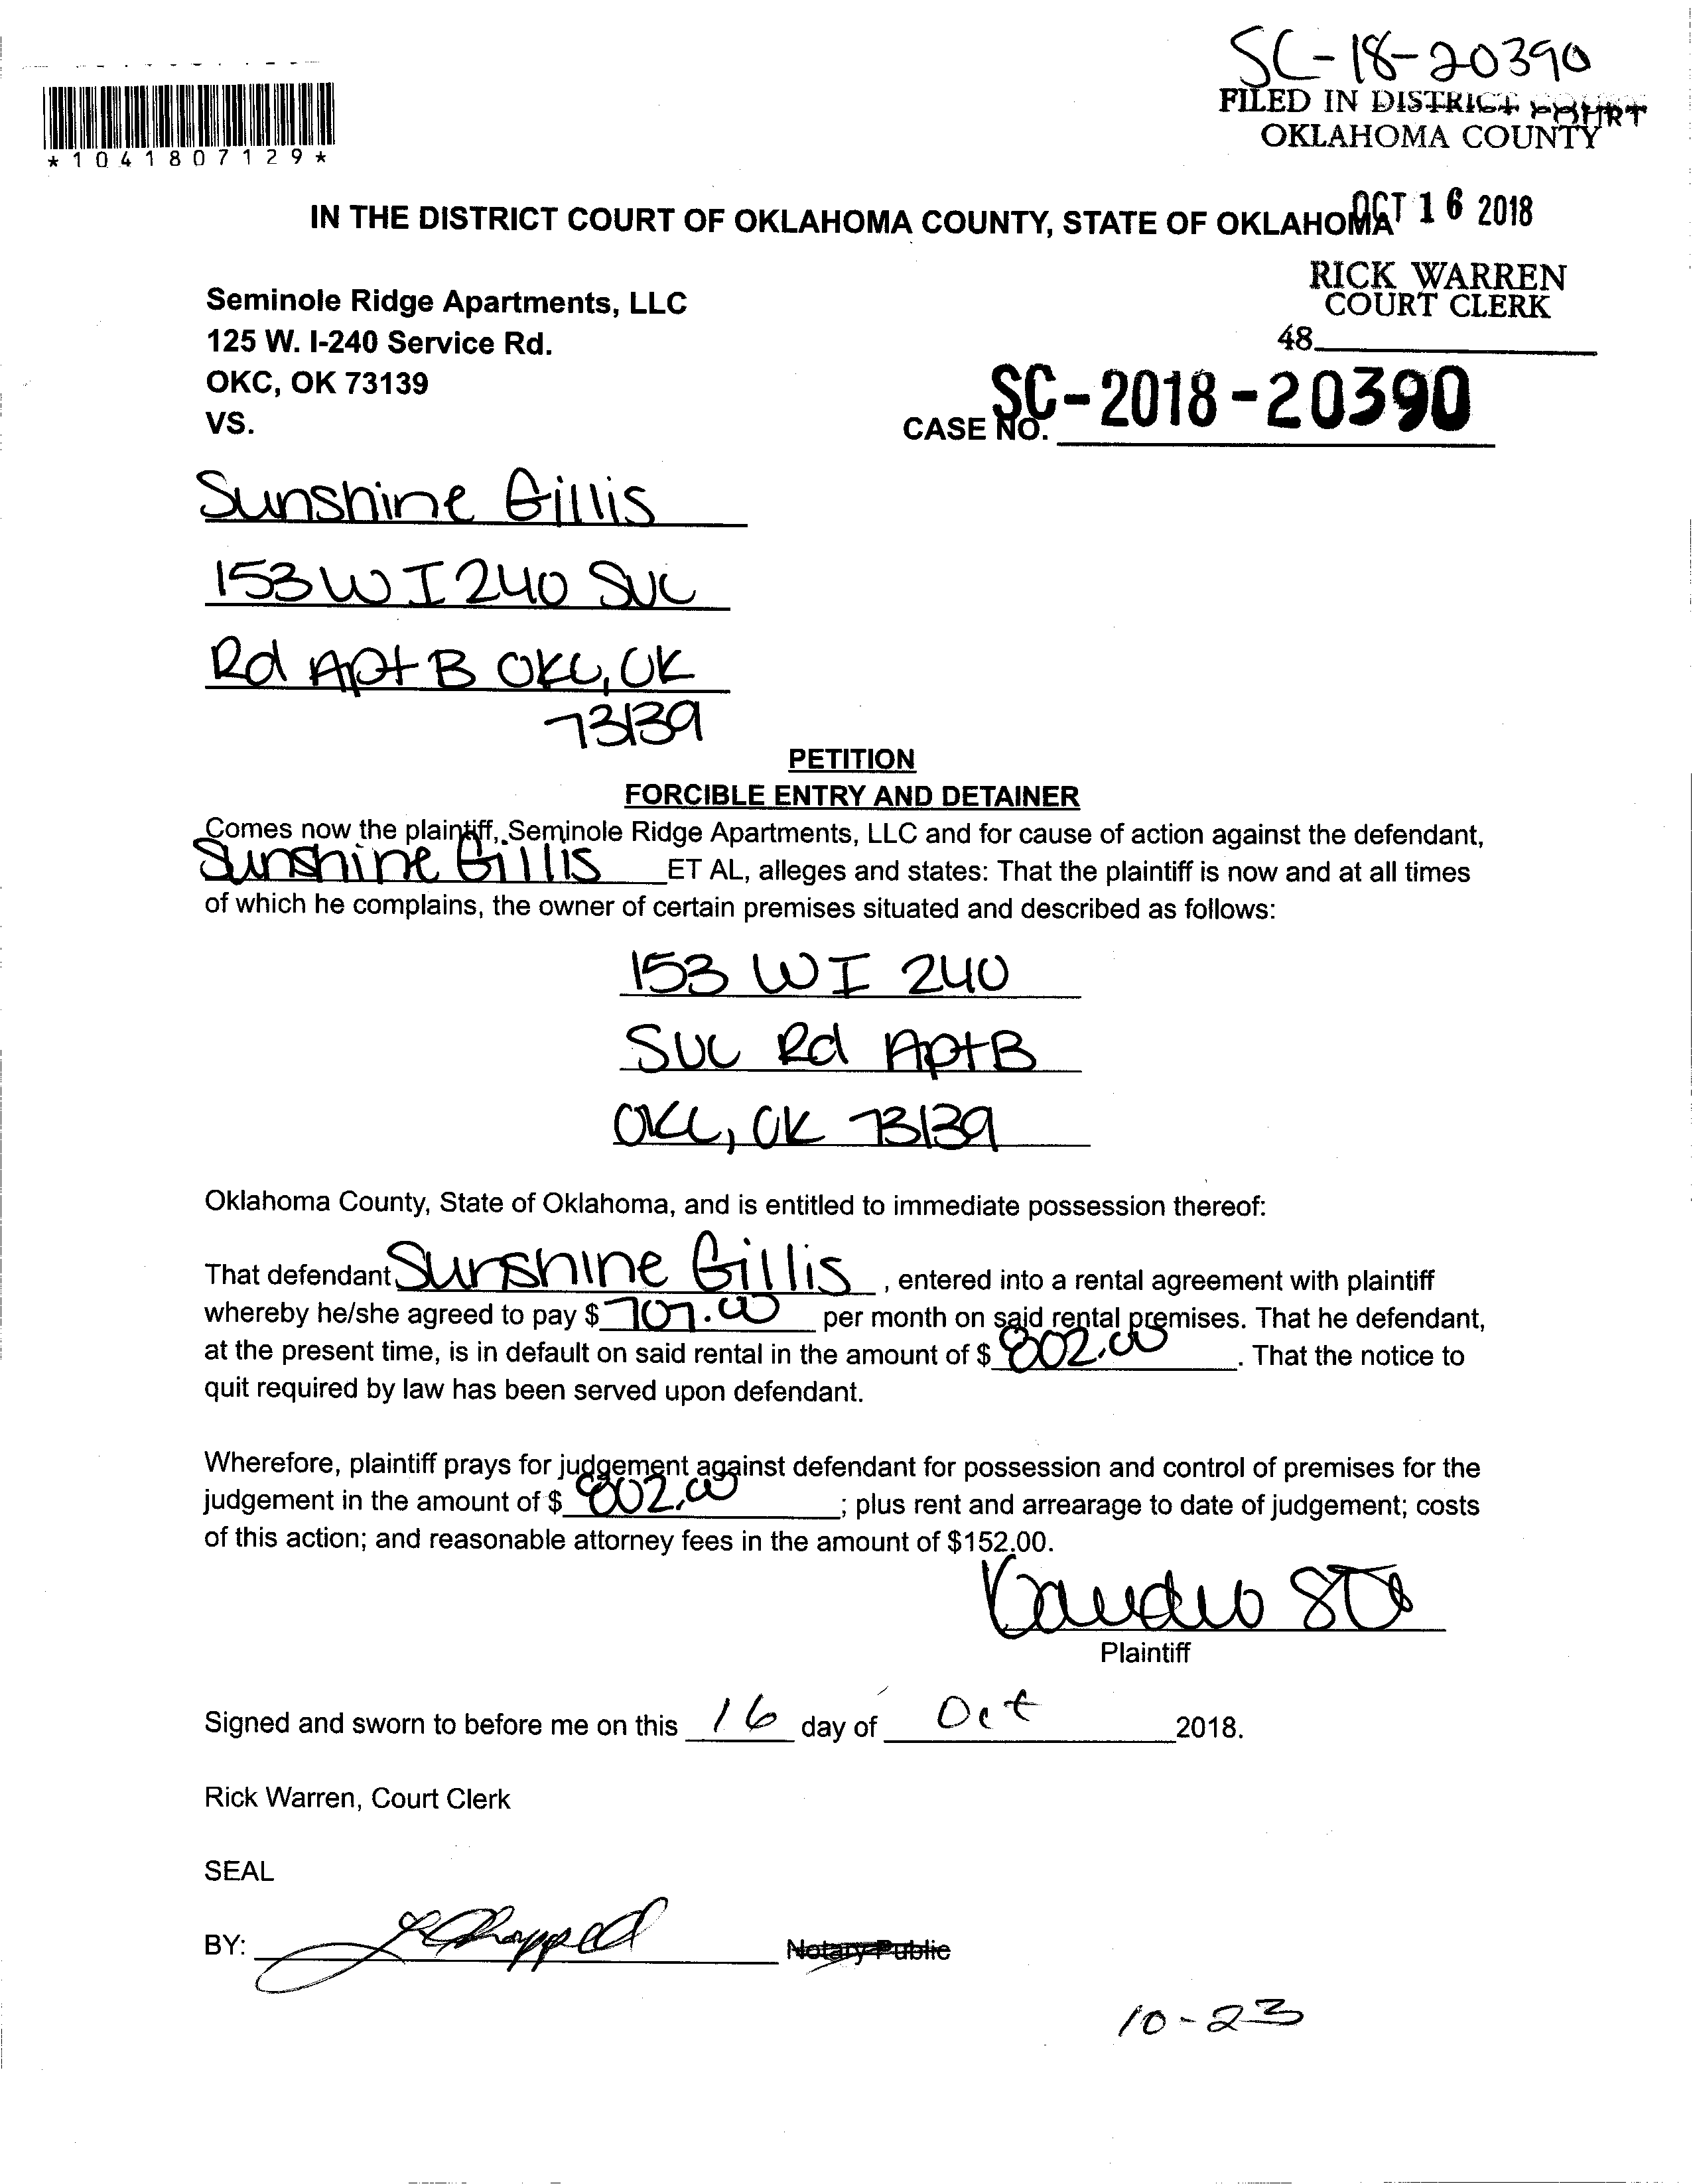 SC-18-20390
FILED IN DISTRICT COURT
OKLAHOMA COUNTY
*1041807129*
IN THE DISTRICT COURT OF OKLAHOMA COUNTY, STATE OF OKLAHOMA
OCT 16 2018
RICK WARREN
COURT CLERK
48
Seminole Ridge Apartments, LLC
125 W. I-240 Service Rd.
OKC, OK 73139
VS.
CASE NO. SC-2018-20390
Sunshine Gillis
153 W I 240 SVC
Rd Apt B OKC, OK
73139
PETITION
FORCIBLE ENTRY AND DETAINER
Comes now the plaintiff, Seminole Ridge Apartments, LLC and for cause of action against the defendant,
Sunshine Gillis ET AL, alleges and states: That the plaintiff is now and at all times
of which he complains, the owner of certain premises situated and described as follows:
153 W I 240
SVC Rd Apt B
OKC, OK 73139
Oklahoma County, State of Oklahoma, and is entitled to immediate possession thereof:
That defendant Sunshine Gillis, entered into a rental agreement with plaintiff
whereby he/she agreed to pay $ 707.00 per month on said rental premises. That he defendant,
at the present time, is in default on said rental in the amount of $ 802.00. That the notice to
quit required by law has been served upon defendant.
Wherefore, plaintiff prays for judgement against defendant for possession and control of premises for the
judgement in the amount of $ 802.00; plus rent and arrearage to date of judgement; costs
of this action; and reasonable attorney fees in the amount of $152.00.
Plaintiff
Signed and sworn to before me on this 16 day of Oct 2018.
Rick Warren, Court Clerk
SEAL
BY: Notary Public
10-23